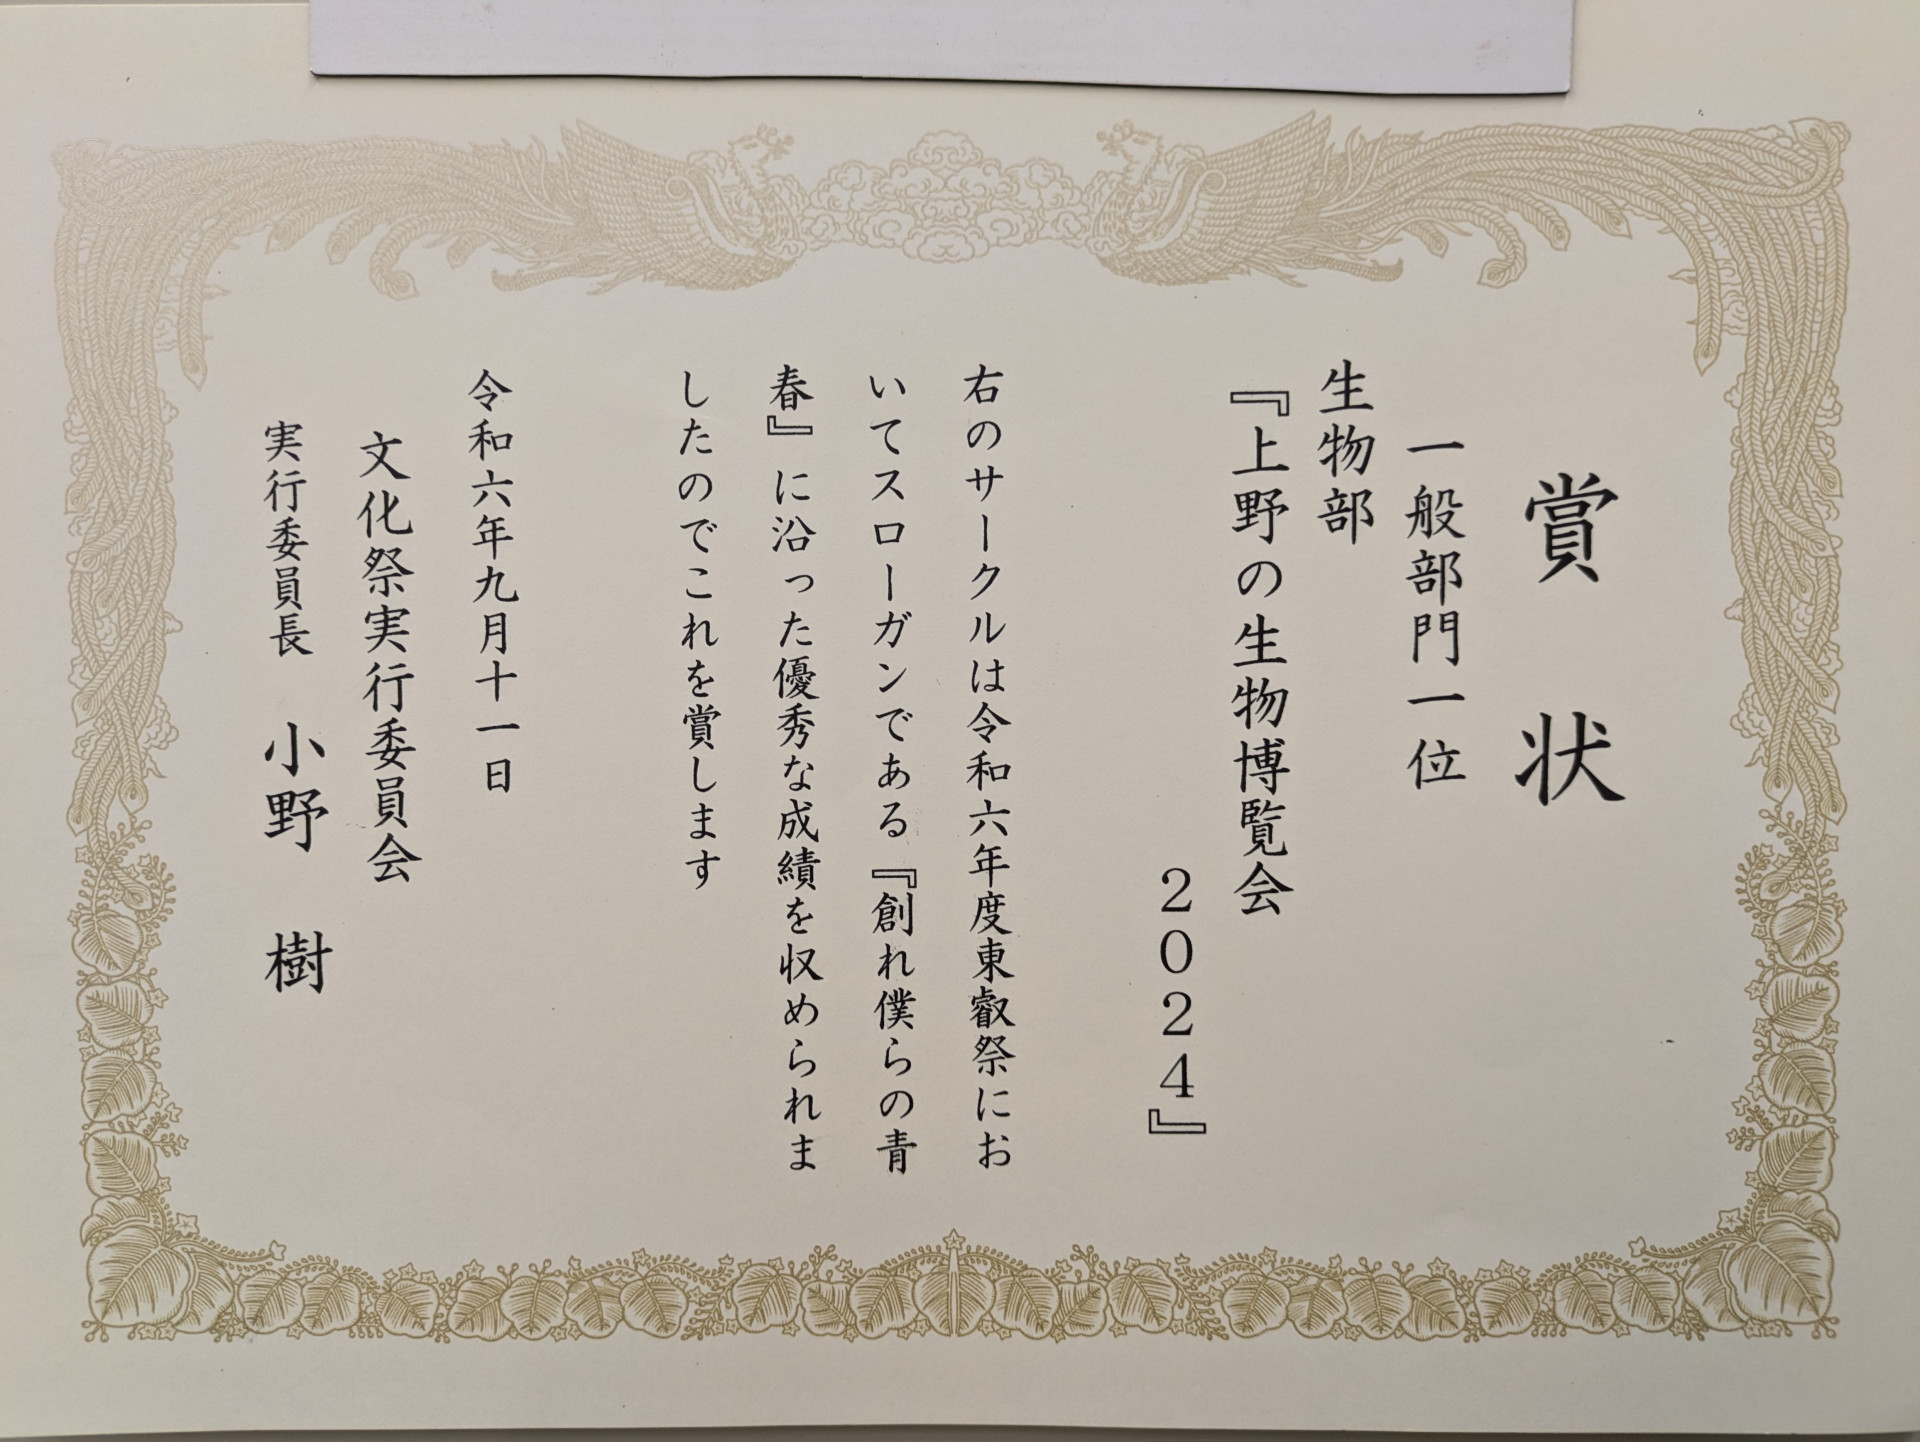 賞状
一般部門一位
生物部
『上野の生物博覧会
2024』
右のサークルは令和六年度東叡祭にお
いてスローガンである『創れ僕らの青
春』に沿った優秀な成績を収められま
したのでこれを賞します
令和六年九月十一日
文化祭実行委員会
実行委員長 小野 樹